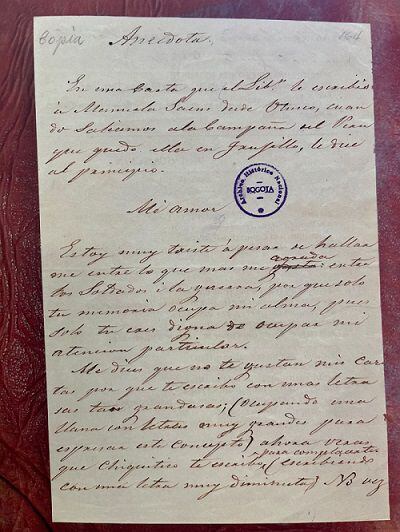 Copia
164
Anecdota.
En una Carta que el Libr. le escribió
á Manuela Saenz desde Otuco, cuan
do Saliamos a la Campaña del Peru
y que quedó ella en Trujillo, le dice
al principio.
Archivo Histórico Nacional
BOGOTA
Mi amor
Estoy muy triste á pesar de hallar
me entre lo que mas me agrada gusta entre
los Soldados i la guerra, por que solo
tu memoria ocupa mi alma, pues
solo tu eres digna de ocupar mi
atencion particular.
Me dices que no te gustan mis car
tas por que te escribo con unas letra
sas tan grandotas; (Ocupando una
llana con letras muy grandes para
espresar este concepto) ahora veras
que Chiquitico te escribo, para complacerte (escribiendo
con una letra muy diminuta) No vez